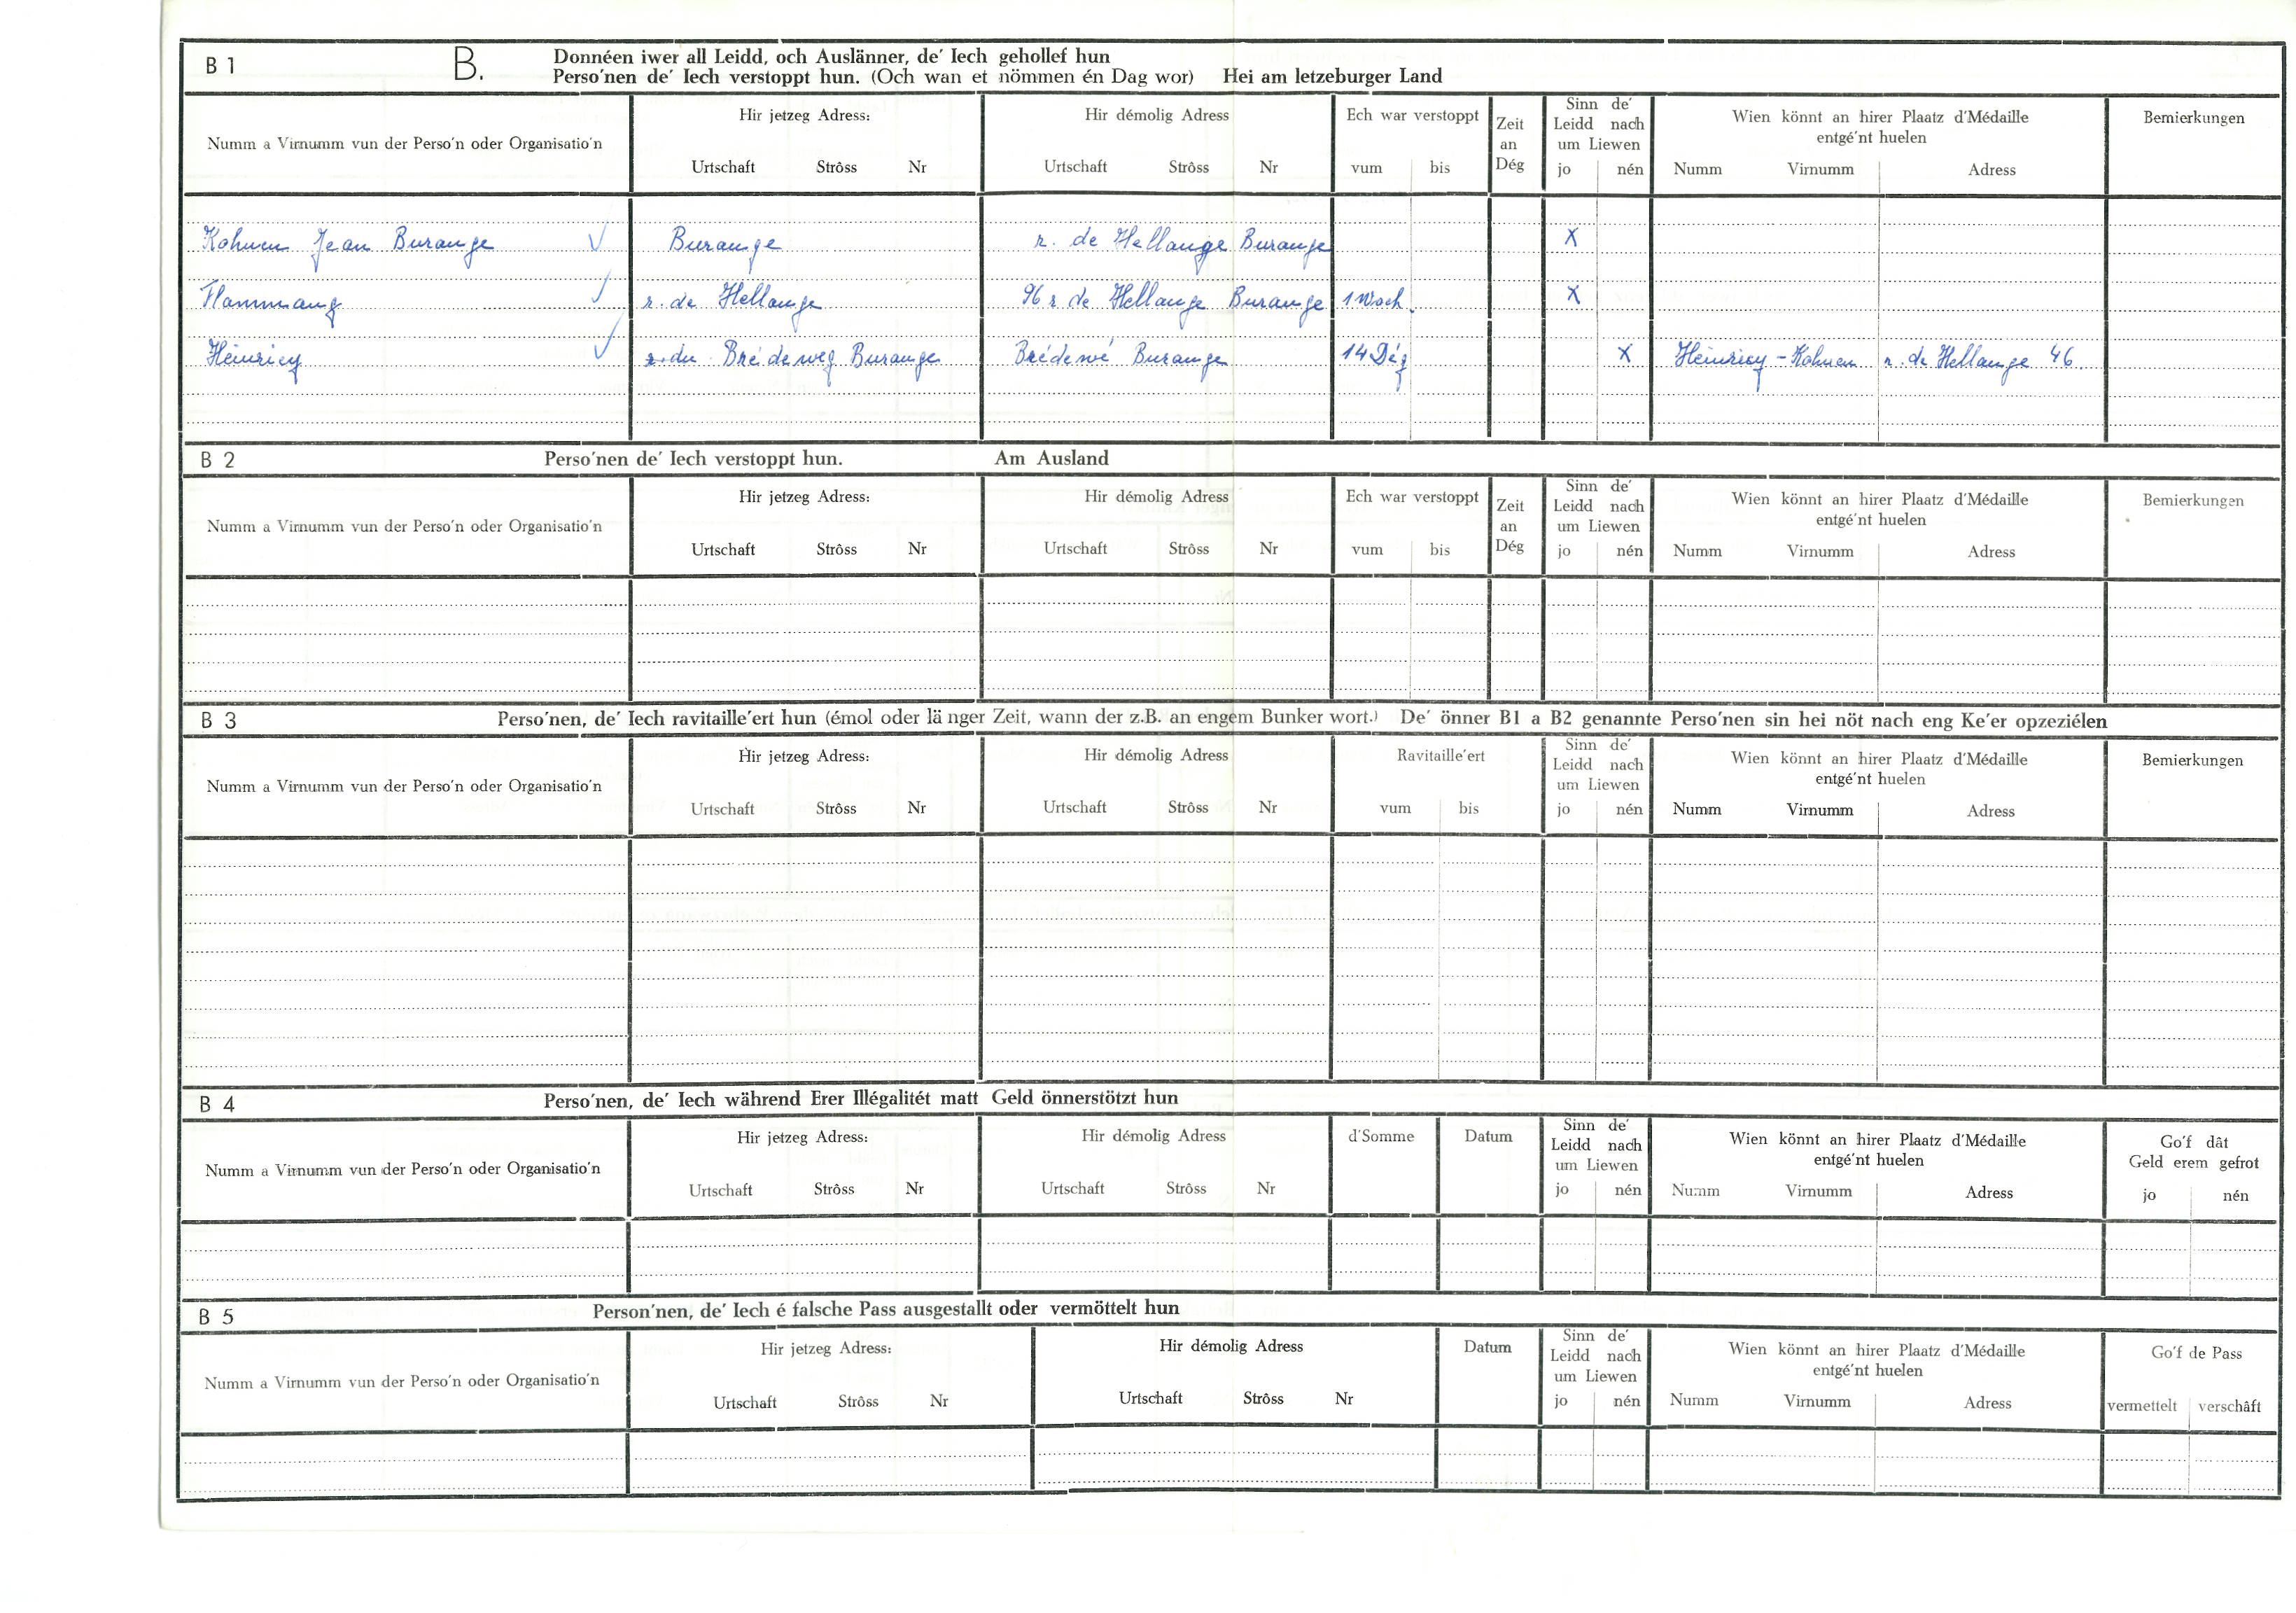 B 1 B. Donnéen iwer all Leidd, och Auslänner, de' Iech gehollef hun
Perso'nen de' Iech verstoppt hun. (Och wan et nömmen én Dag wor) Hei am letzeburger Land
Numm a Virnumm vun der Perso'n oder Organisatio'n
Hir jetzeg Adress:
Urtschaft Strôss Nr
Hir démolig Adress
Urtschaft Strôss Nr
Ech war verstoppt
vum bis
Zeit
an
Dég
Sinn de'
Leidd nach
um Liewen
jo nén
Wien könnt an hirer Plaatz d'Médaille
entgé'nt huelen
Numm Virnumm Adress
Bemierkungen
Kohnen Jean Burange ✓ Burange r. de Hellange Burange X
Flammang ✓ r. de Hellange 96 r. de Hellange Burange 1 Woch. X
Heinricy ✓ r. du Brédeweg Burange Brédewé Burange 14 Dég X Heinricy - Kohnen r. de Hellange 46
B 2 Perso'nen de' Iech verstoppt hun. Am Ausland
Numm a Virnumm vun der Perso'n oder Organisatio'n
Hir jetzeg Adress:
Urtschaft Strôss Nr
Hir démolig Adress
Urtschaft Strôss Nr
Ech war verstoppt
vum bis
Zeit
an
Dég
Sinn de'
Leidd nach
um Liewen
jo nén
Wien könnt an hirer Plaatz d'Médaille
entgé'nt huelen
Numm Virnumm Adress
Bemierkungen
B 3 Perso'nen, de' Iech ravitaille'ert hun (émol oder lä nger Zeit, wann der z.B. an engem Bunker wort.) De' önner B1 a B2 genannte Perso'nen sin hei nöt nach eng Ke'er opzeziélen
Numm a Virnumm vun der Perso'n oder Organisatio'n
Hir jetzeg Adress:
Urtschaft Strôss Nr
Hir démolig Adress
Urtschaft Strôss Nr
Ravitaille'ert
vum bis
Sinn de'
Leidd nach
um Liewen
jo nén
Wien könnt an hirer Plaatz d'Médaille
entgé'nt huelen
Numm Virnumm Adress
Bemierkungen
B 4 Perso'nen, de' Iech während Erer Illégalitét matt Geld önnerstötzt hun
Numm a Virnumm vun der Perso'n oder Organisatio'n
Hir jetzeg Adress:
Urtschaft Strôss Nr
Hir démolig Adress
Urtschaft Strôss Nr
d'Somme
Datum
Sinn de'
Leidd nach
um Liewen
jo nén
Wien könnt an hirer Plaatz d'Médaille
entgé'nt huelen
Numm Virnumm Adress
Go'f dât
Geld erem gefrot
jo nén
B 5 Person'nen, de' Iech é falsche Pass ausgestallt oder vermöttelt hun
Numm a Virnumm vun der Perso'n oder Organisatio'n
Hir jetzeg Adress:
Urtschaft Strôss Nr
Hir démolig Adress
Urtschaft Strôss Nr
Datum
Sinn de'
Leidd nach
um Liewen
jo nén
Wien könnt an hirer Plaatz d'Médaille
entgé'nt huelen
Numm Virnumm Adress
Go'f de Pass
vermettelt verschâft